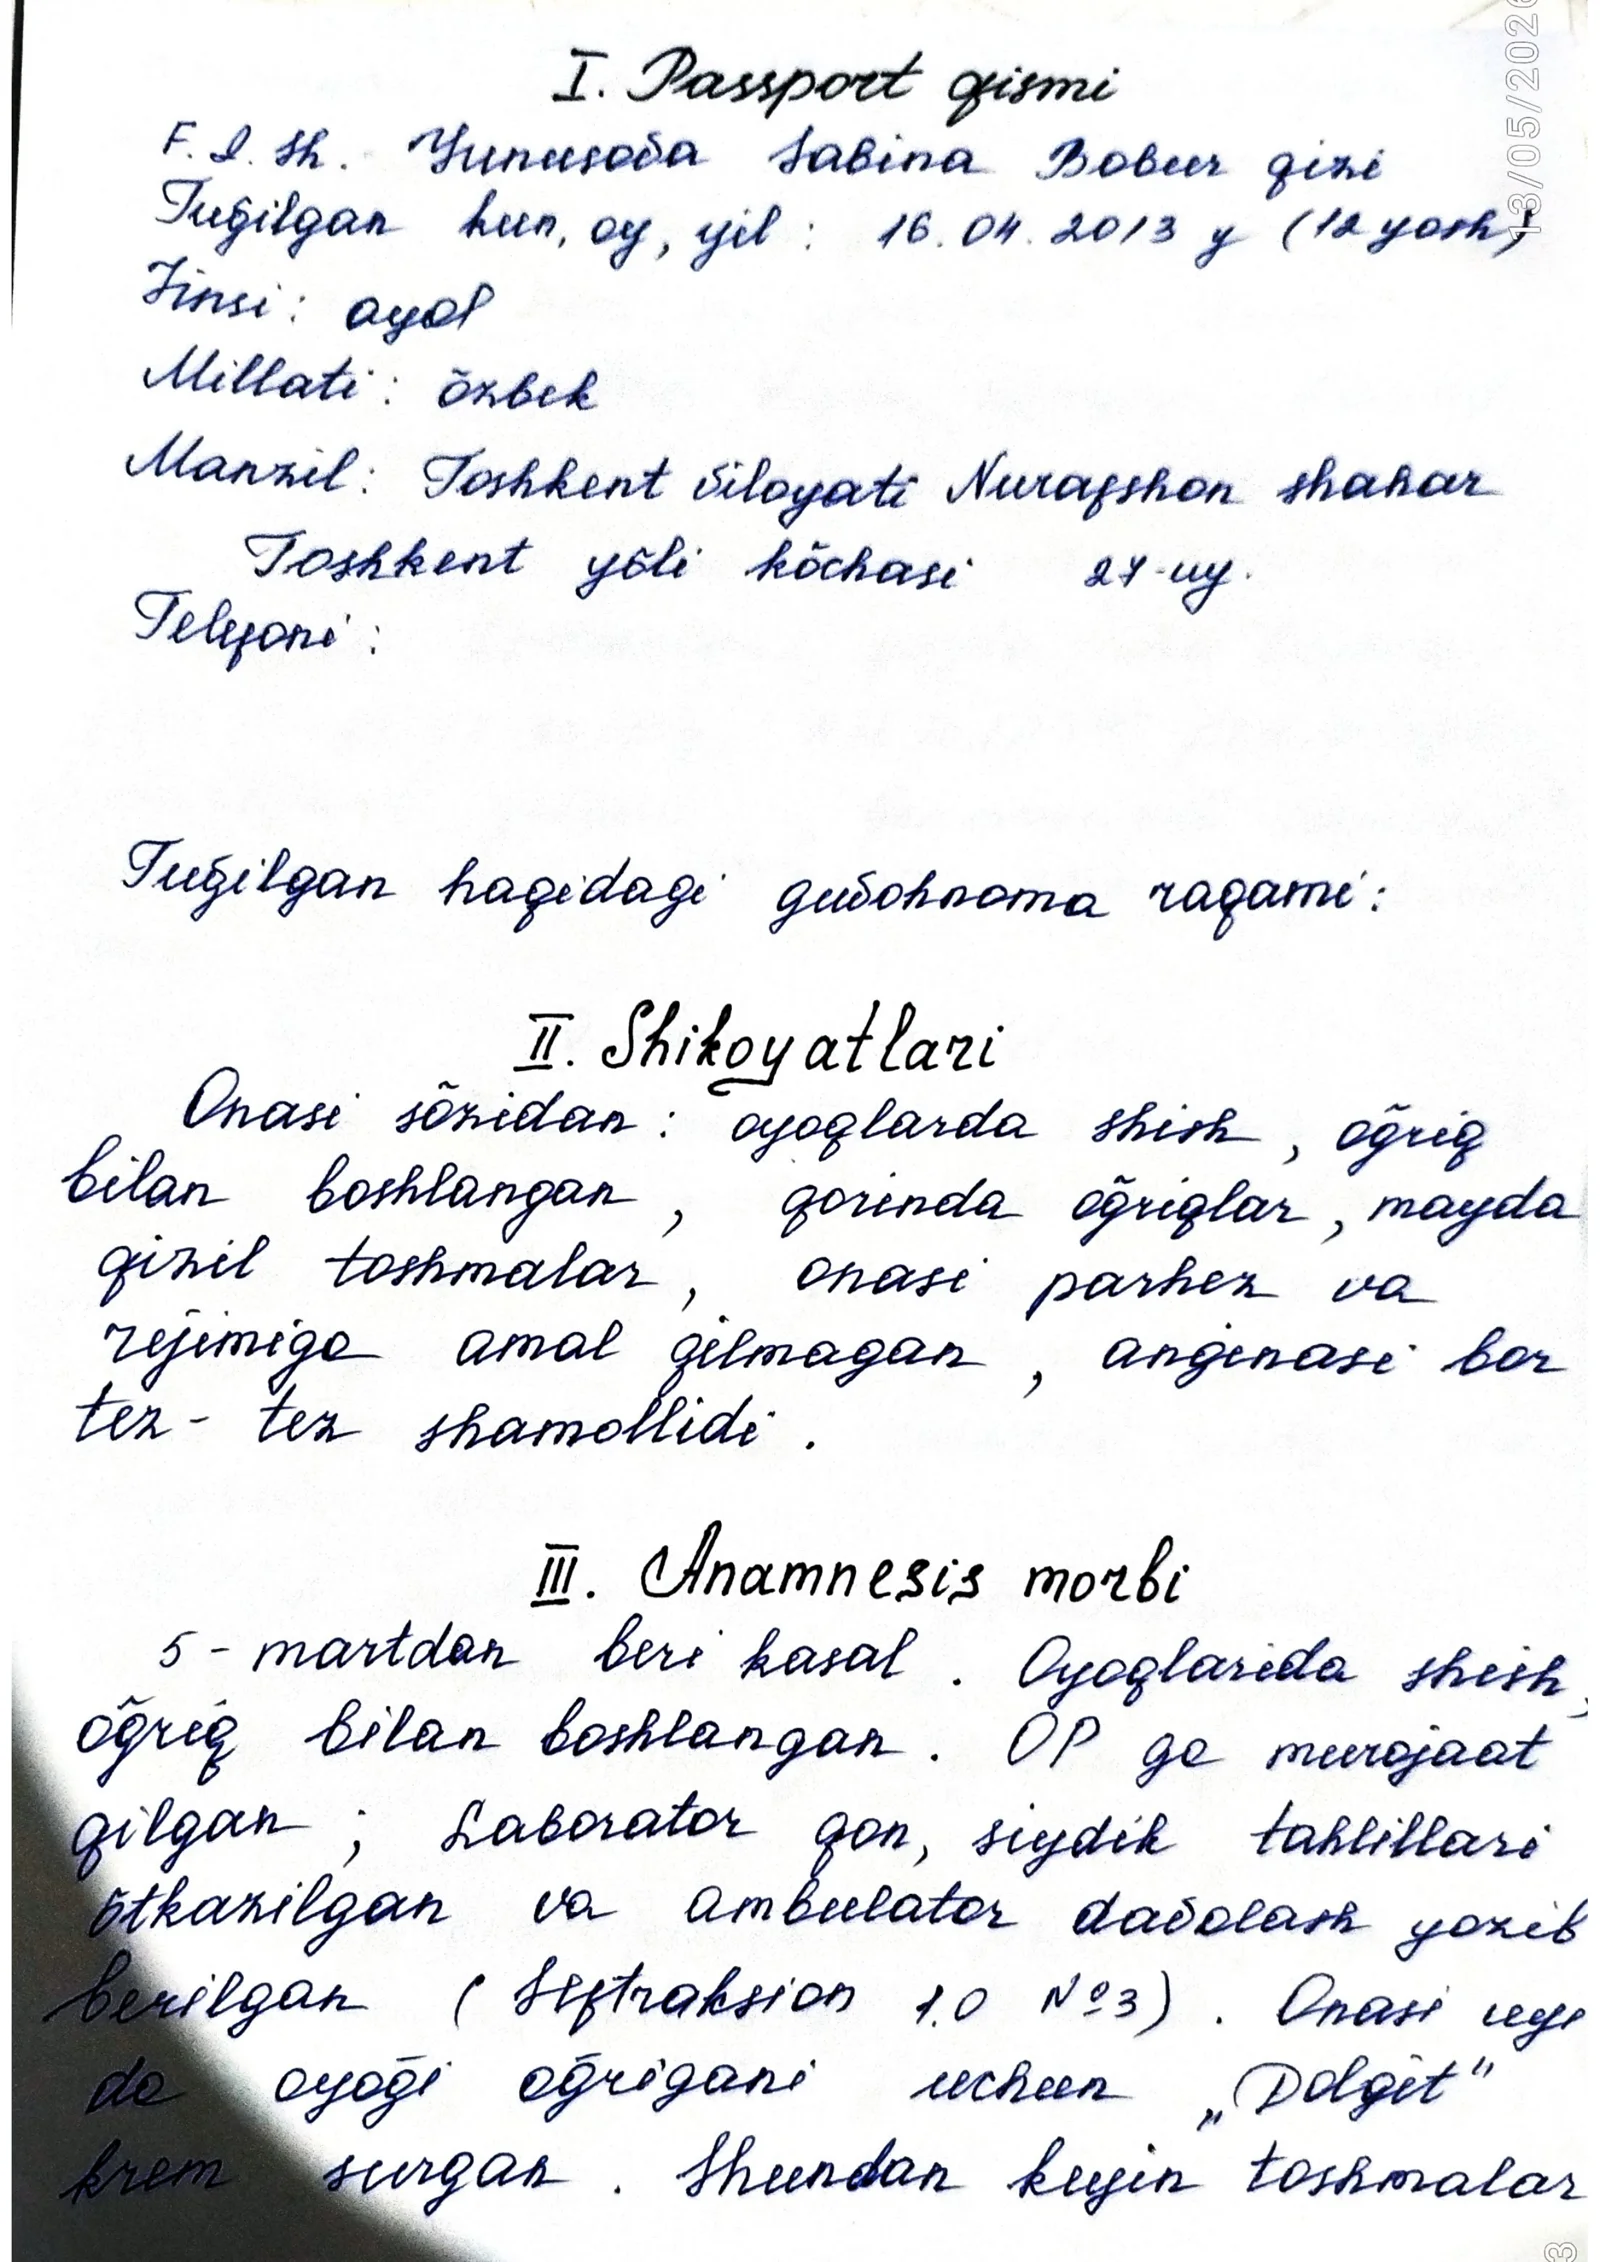 I. Passport qismi
F. I. Sh. Yunusova Sabina Bobur qizi
Tug̃ilgan kun, oy, yil : 16.04.2013 y (12 yosh)
Jinsi : ayol
Millati : õzbek
Manzil : Toshkent viloyati Nurafshon shahar
Toshkent yõli kõchasi 27-uy.
Telefoni :
Tug̃ilgan haqidagi guvohnoma raqami :
II. Shikoyatlari
Onasi sõzidan : oyoqlarda shish, õg̃riq
bilan boshlangan, qorinda õg̃riqlar, mayda
qizil toshmalar, onasi parhez va
rejimiga amal qilmagan, anginasi bor
tez - tez shamollidi.
III. Anamnesis morbi
5 - martdan beri kasal. Oyoqlarida shish,
õg̃riq bilan boshlangan. OP ga murojaat
qilgan ; Laborator qon, siydik tahlillari
õtkazilgan va ambulator davolash yozib
berilgan ( Seftraksion 1.0 №3). Onasi uyi
da oyog̃i og̃rigani uchun „Dolgit"
krem surgan. Shundan keyin toshmalar
13/05/2026
3